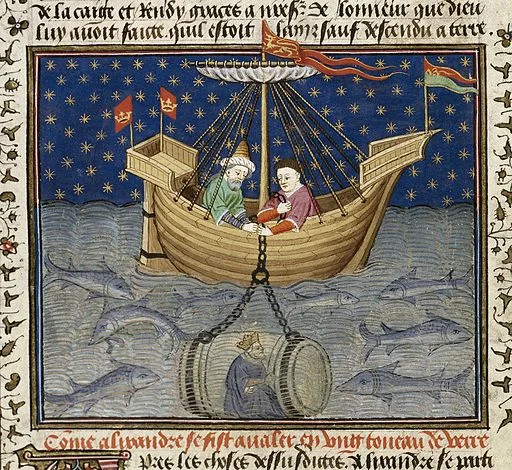 de la caige et Rendy graces a De lonneur que dieu
luy auoit faicte quil estoit sauf descendu a terre
Come alixandre se fist aualer en vng toneau de verre
Pres les choses dessusdictes Alixandre se parti